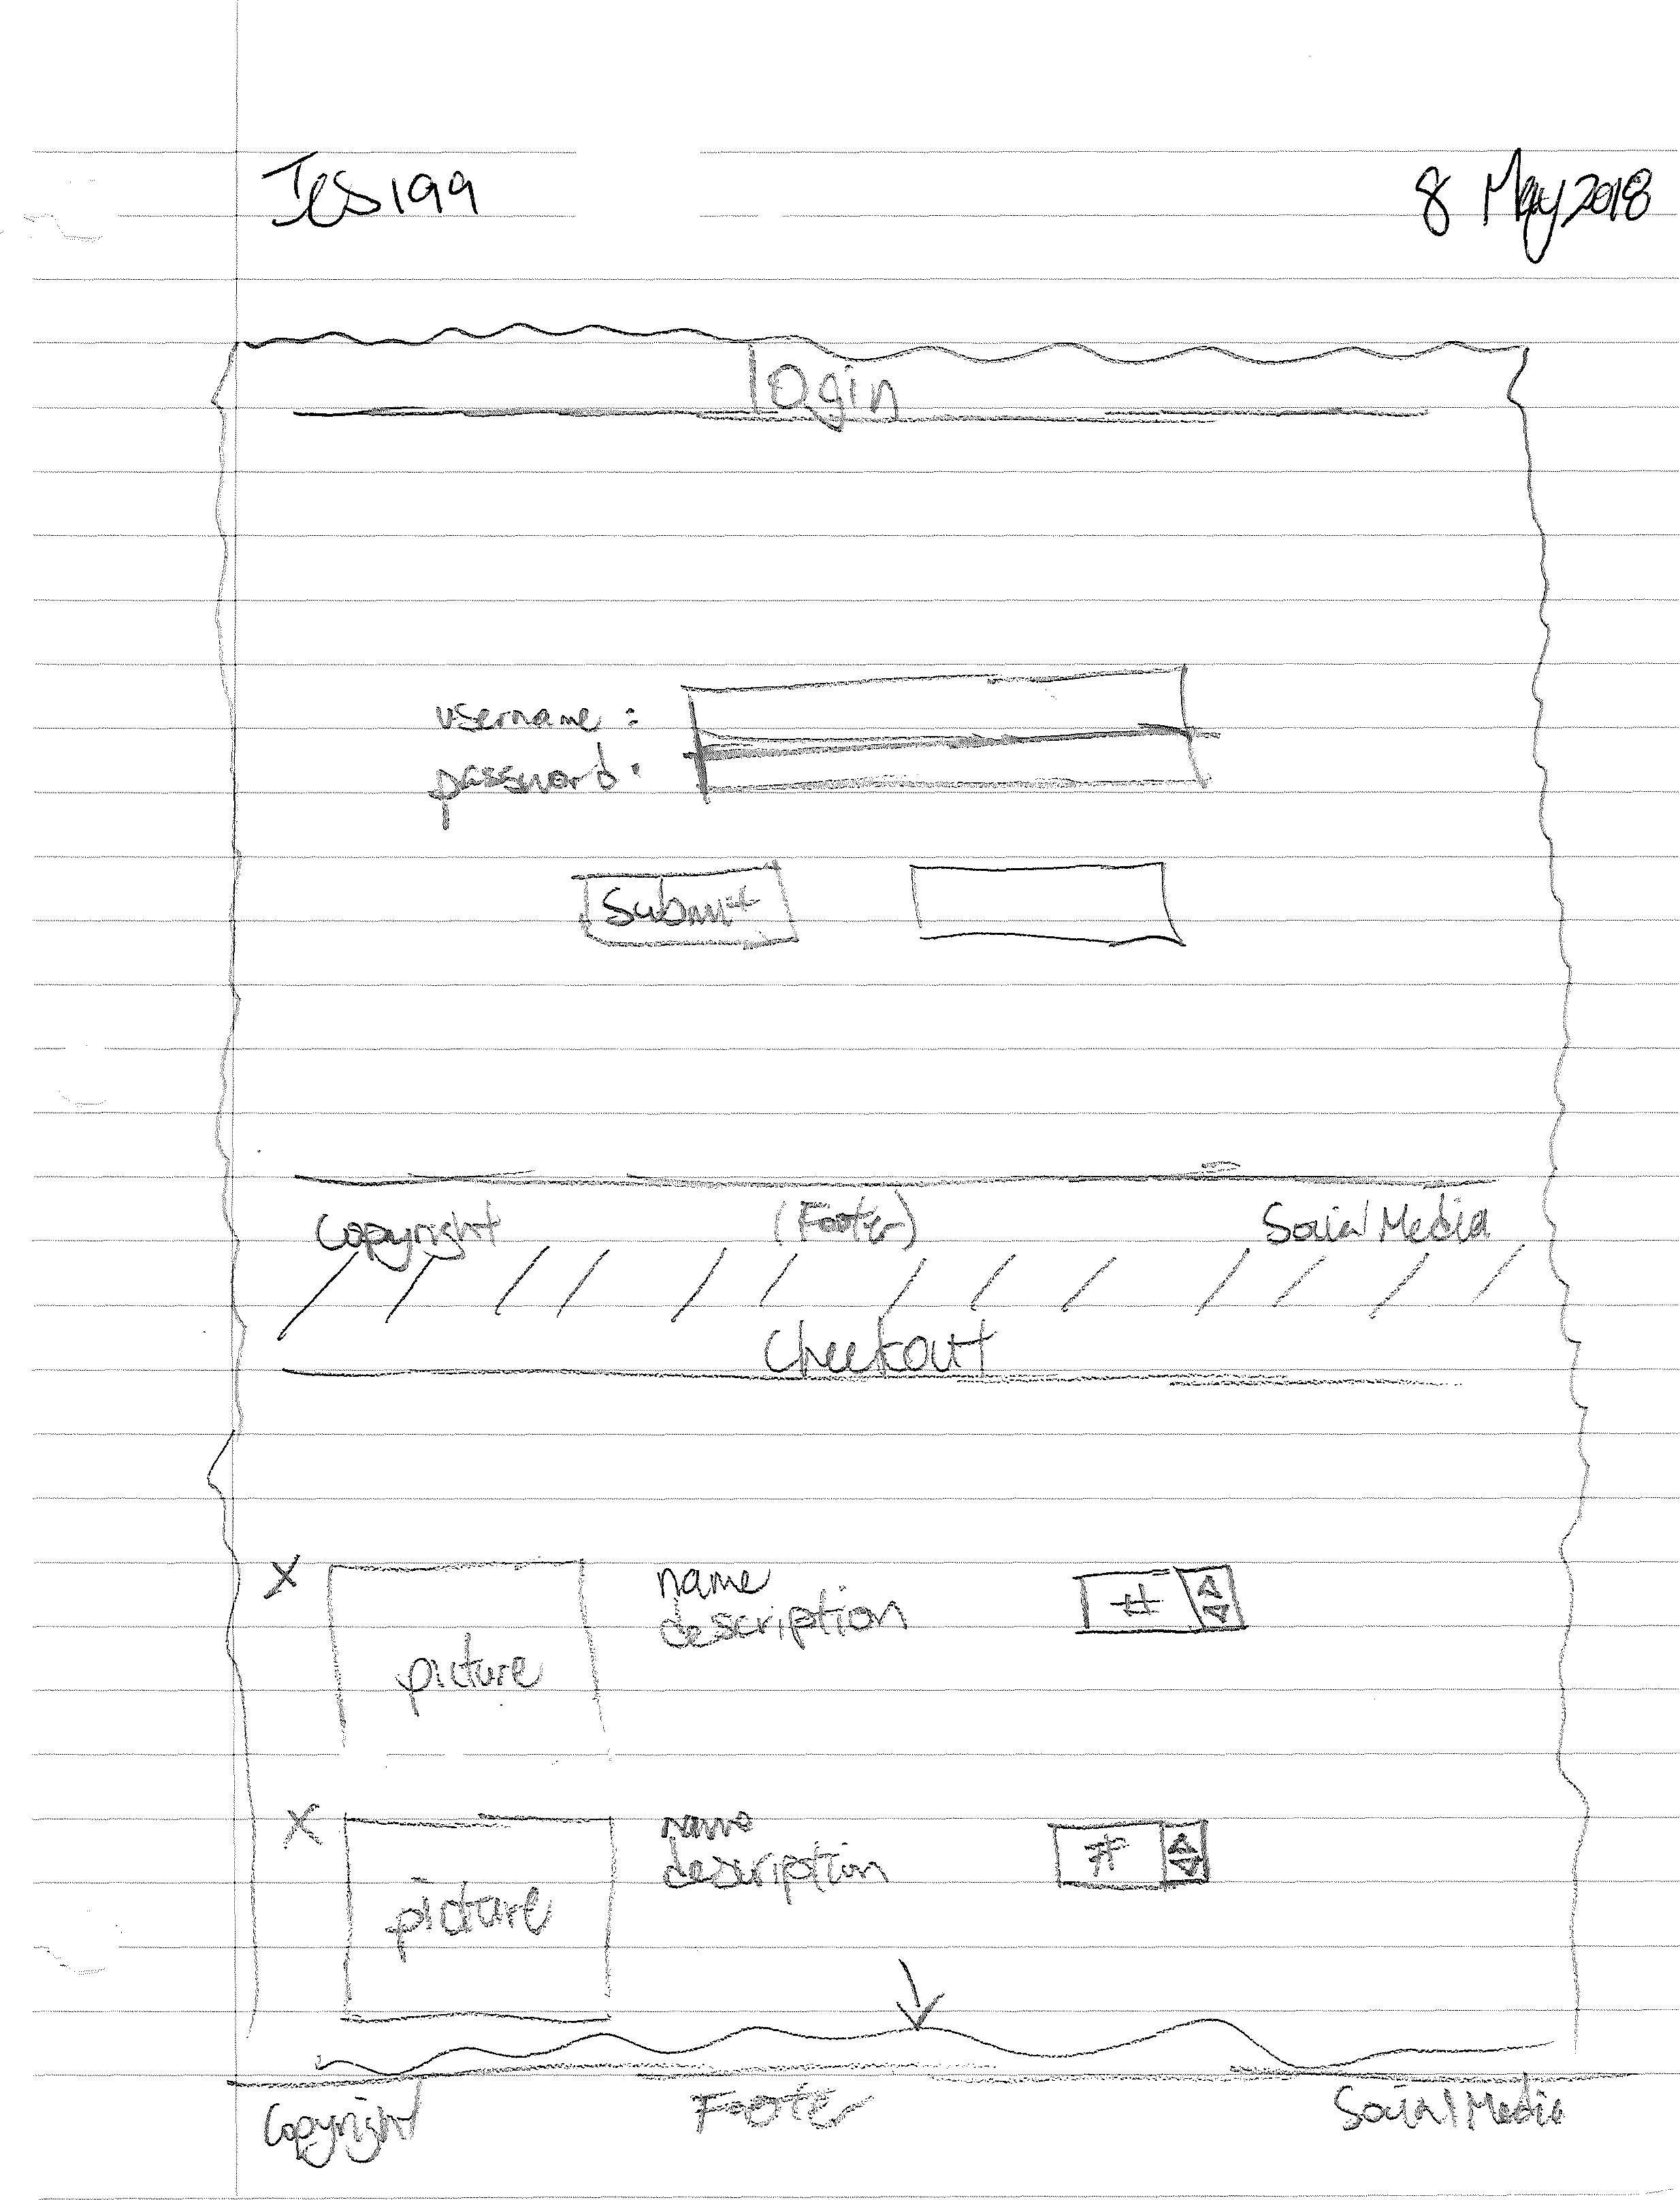 ICS 199 8 May 2018
login
username :
password :
Submit
Copyright (Footer) Social Media
Checkout
X name #
description
picture
X name #
description
picture
Copyright Footer Social Media